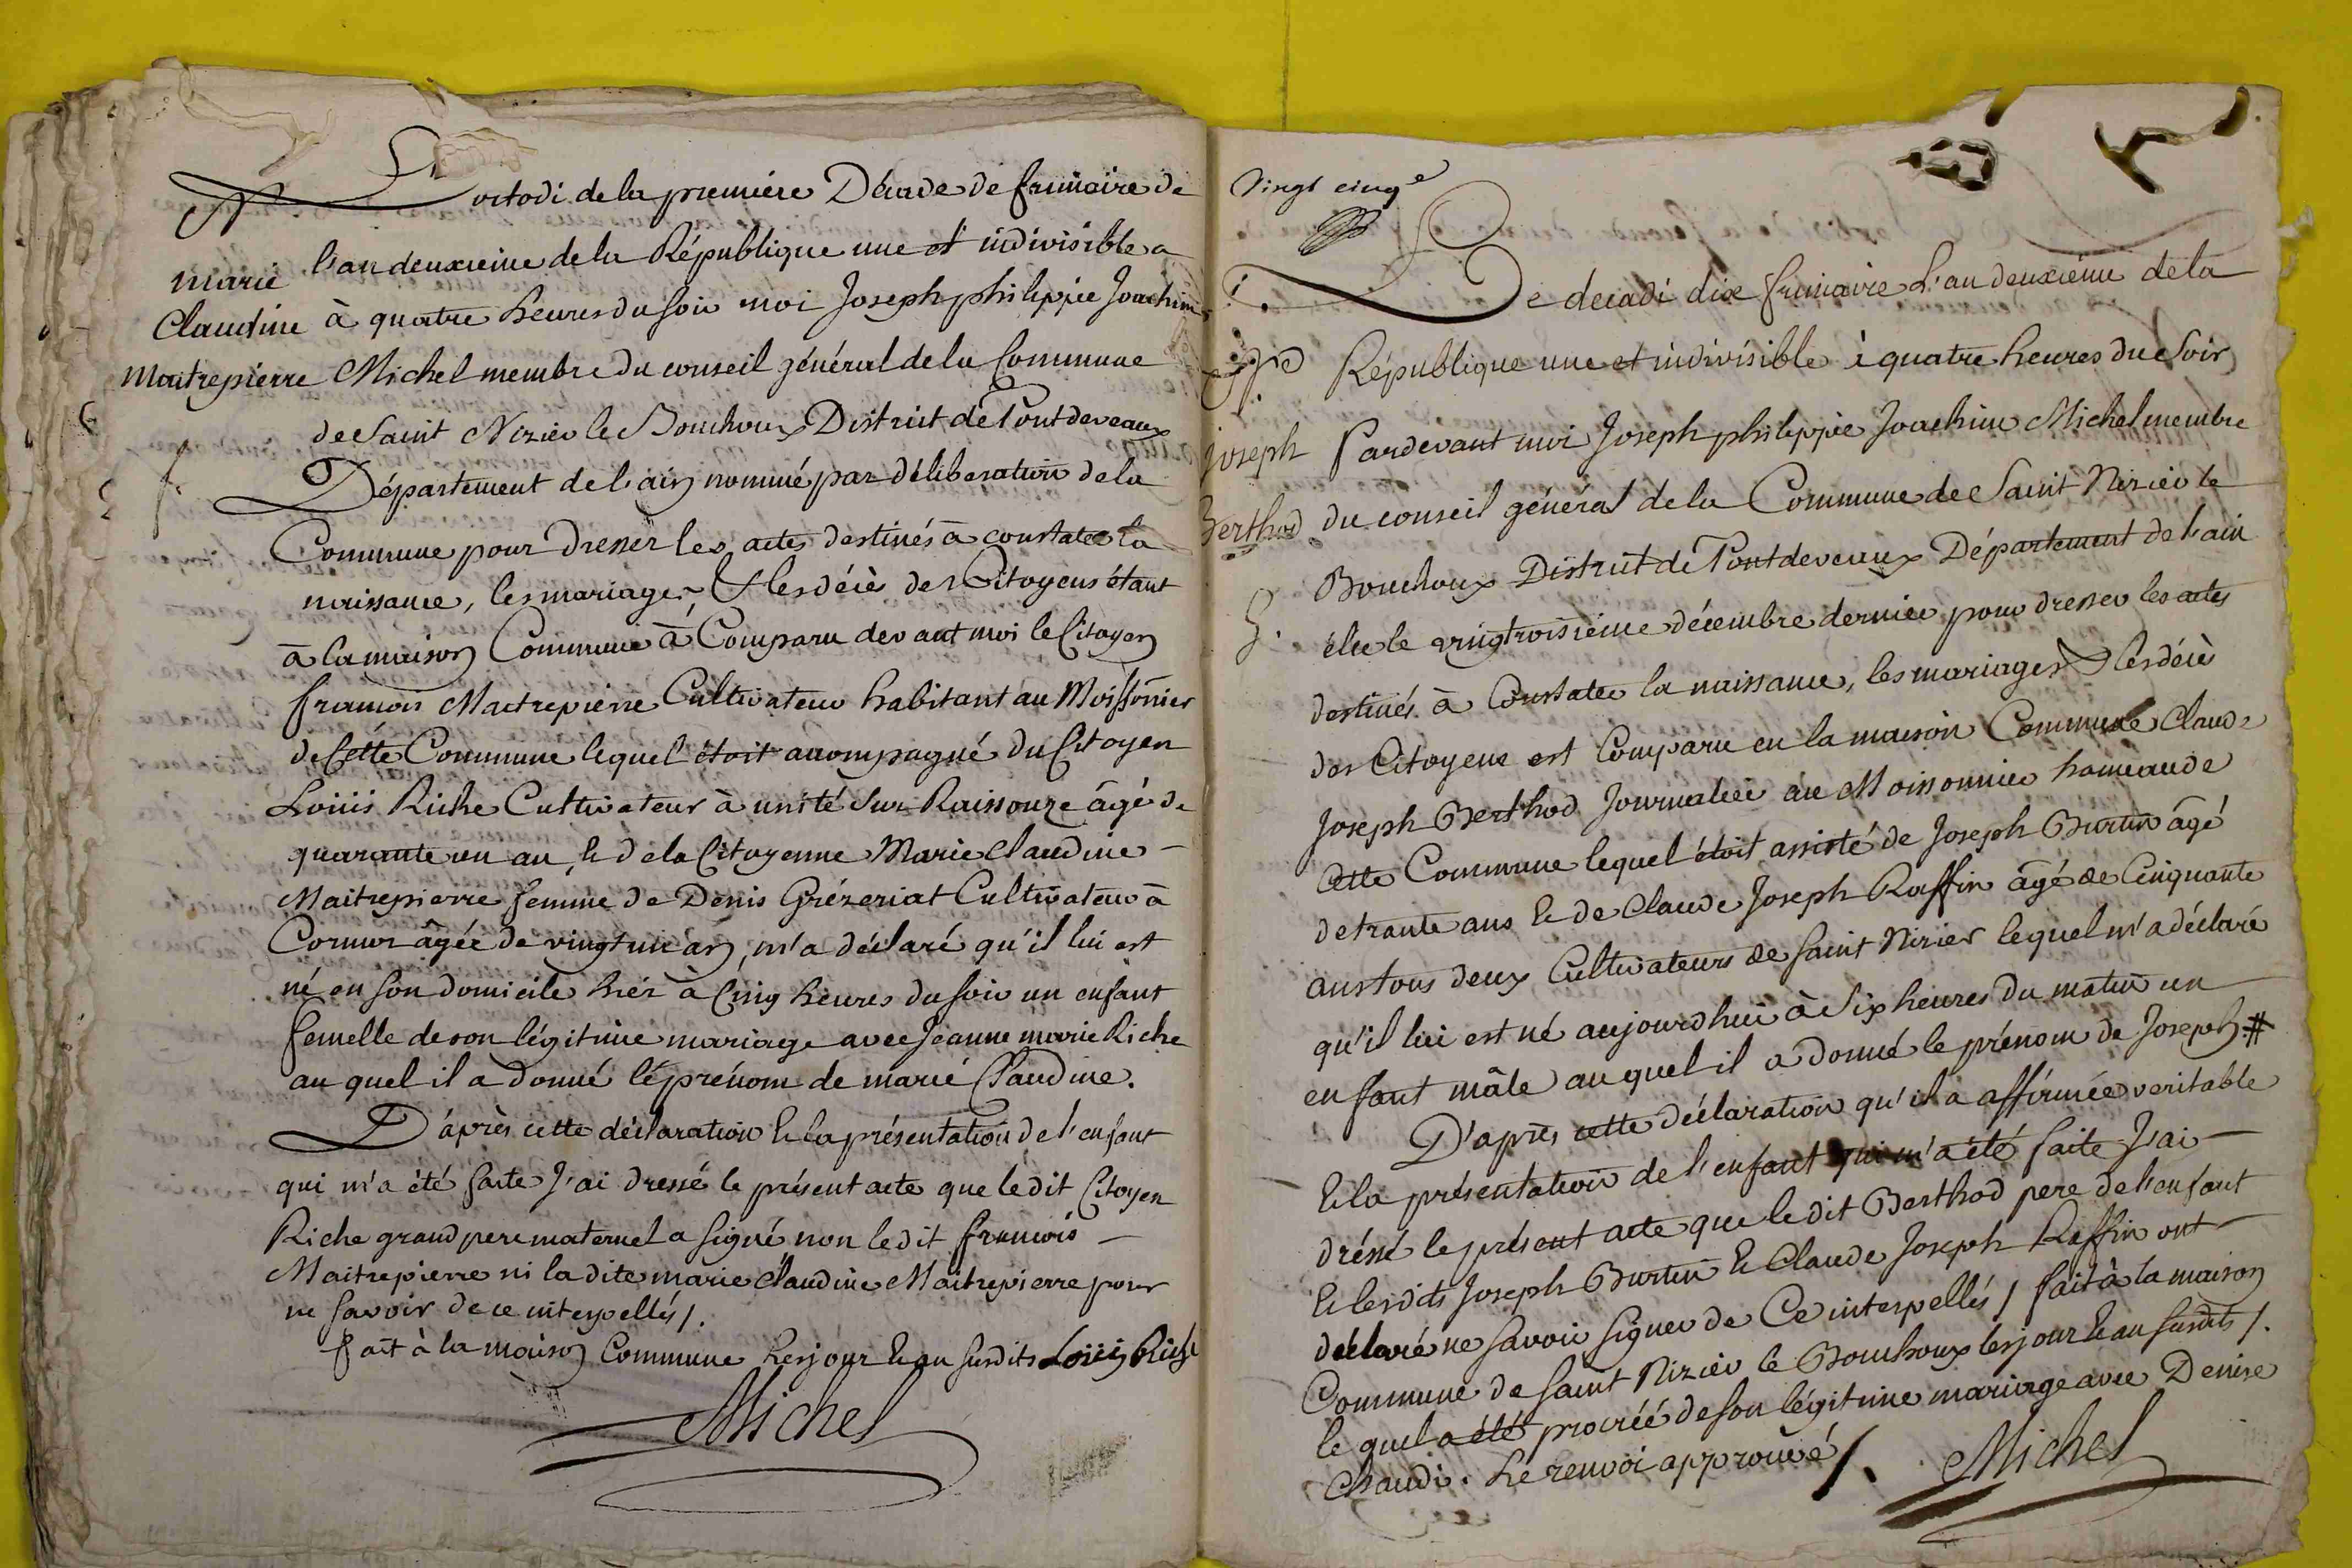 L'octodi de la premiére Décade de frimaire de
l'an deuxieme de la République une et indivisible a
marie
Claudine
Maitrepierre
à quatre heures du soir moi Joseph philippe Joachim
Michel membre du conseil général de la Commune
de Saint Nizier le Bouchoux District de Pontdevaux
Département de l'ain nommé par déliberation de la
Commune pour dresser les actes destinés à constater la
naissance, les mariages & les décès des Citoyens étant
à la maison Commune à Comparu devant moi le Citoyen
francois Maitrepierre Cultivateur habitant au Moissonier
de Cette Commune lequel étoit accompagné du Citoyen
Loüis Riche Cultivateur à unité sur Raissouze âgé de
quarante un an, & de la Citoyenne Marie Claudine –
Maitrepierre femme de Denis Grézeriat Cultivateur à
Cormoz âgée de vingt un an, m'a déclaré qu'il lui est
né en son domicile hiér à Cinq heures du soir un enfant
femelle de son légitime mariage avec Jeanne marie Riche
au quel il a donné le prénom de marie Claudine.
D'áprès cette déclaration & la présentation de l'enfant
qui m'a été faite J'ai dressé le présent acte que le dit Citoyen
Riche grand pere maternel a signé non le dit francois –
Maitrepierre ni la dite marie Claudine Maitrepierre pour
ne savoir de ce interpellés /.
fait à la maison Commune les jour & an susdits Loüis Riche
Michel
Vingt cinq e
Le decadi dix frimaire L'an deuxiéme de la
République une et indivisible à quatre heures du Soir
joseph
Berthod
Pardevant moi Joseph philippe Joachim Michel membre
du conseil général de la Commune de Saint Nizier le
Bouchoux District de Pontdevaux Département de l'ain
élu le vingtroisiéme décembre dernier pour dresser les actes
destinés à Constater la naissance, les mariages & les décès
des Citoyens est Comparu en la maison Commune Claude
Joseph Berthod Journalier au Moissonnier hameau de
Cette Commune lequel étoit assisté de Joseph Burtin âgé
de trante ans & de Claude Joseph Raffin âgé de Cinquante
ans tous deux Cultivateurs de Saint Nizier lequel m'a déclaré
qu'il lui est né aujourd'hui à Six heures du matin un
enfant mâle au quel il a donné le prénom de Joseph #
D'après cette déclaration qu'il a affirmée veritable
& la présentation de l'enfant qui m'a été faite J'ai –
dréssé le présent acte que le dit Berthod pere de l'enfant
& lesdits Joseph Burtin & Claude Joseph Raffin ont –
déclaré ne savoir signer de Ce interpellés / fait à la maison
Commune de Saint Nizier le Bouchoux les jour & an susdits /.
le quel a été procréé de son légitime mariage avec Denise
Chaudi. Le renvoi approuvé /.
Michel